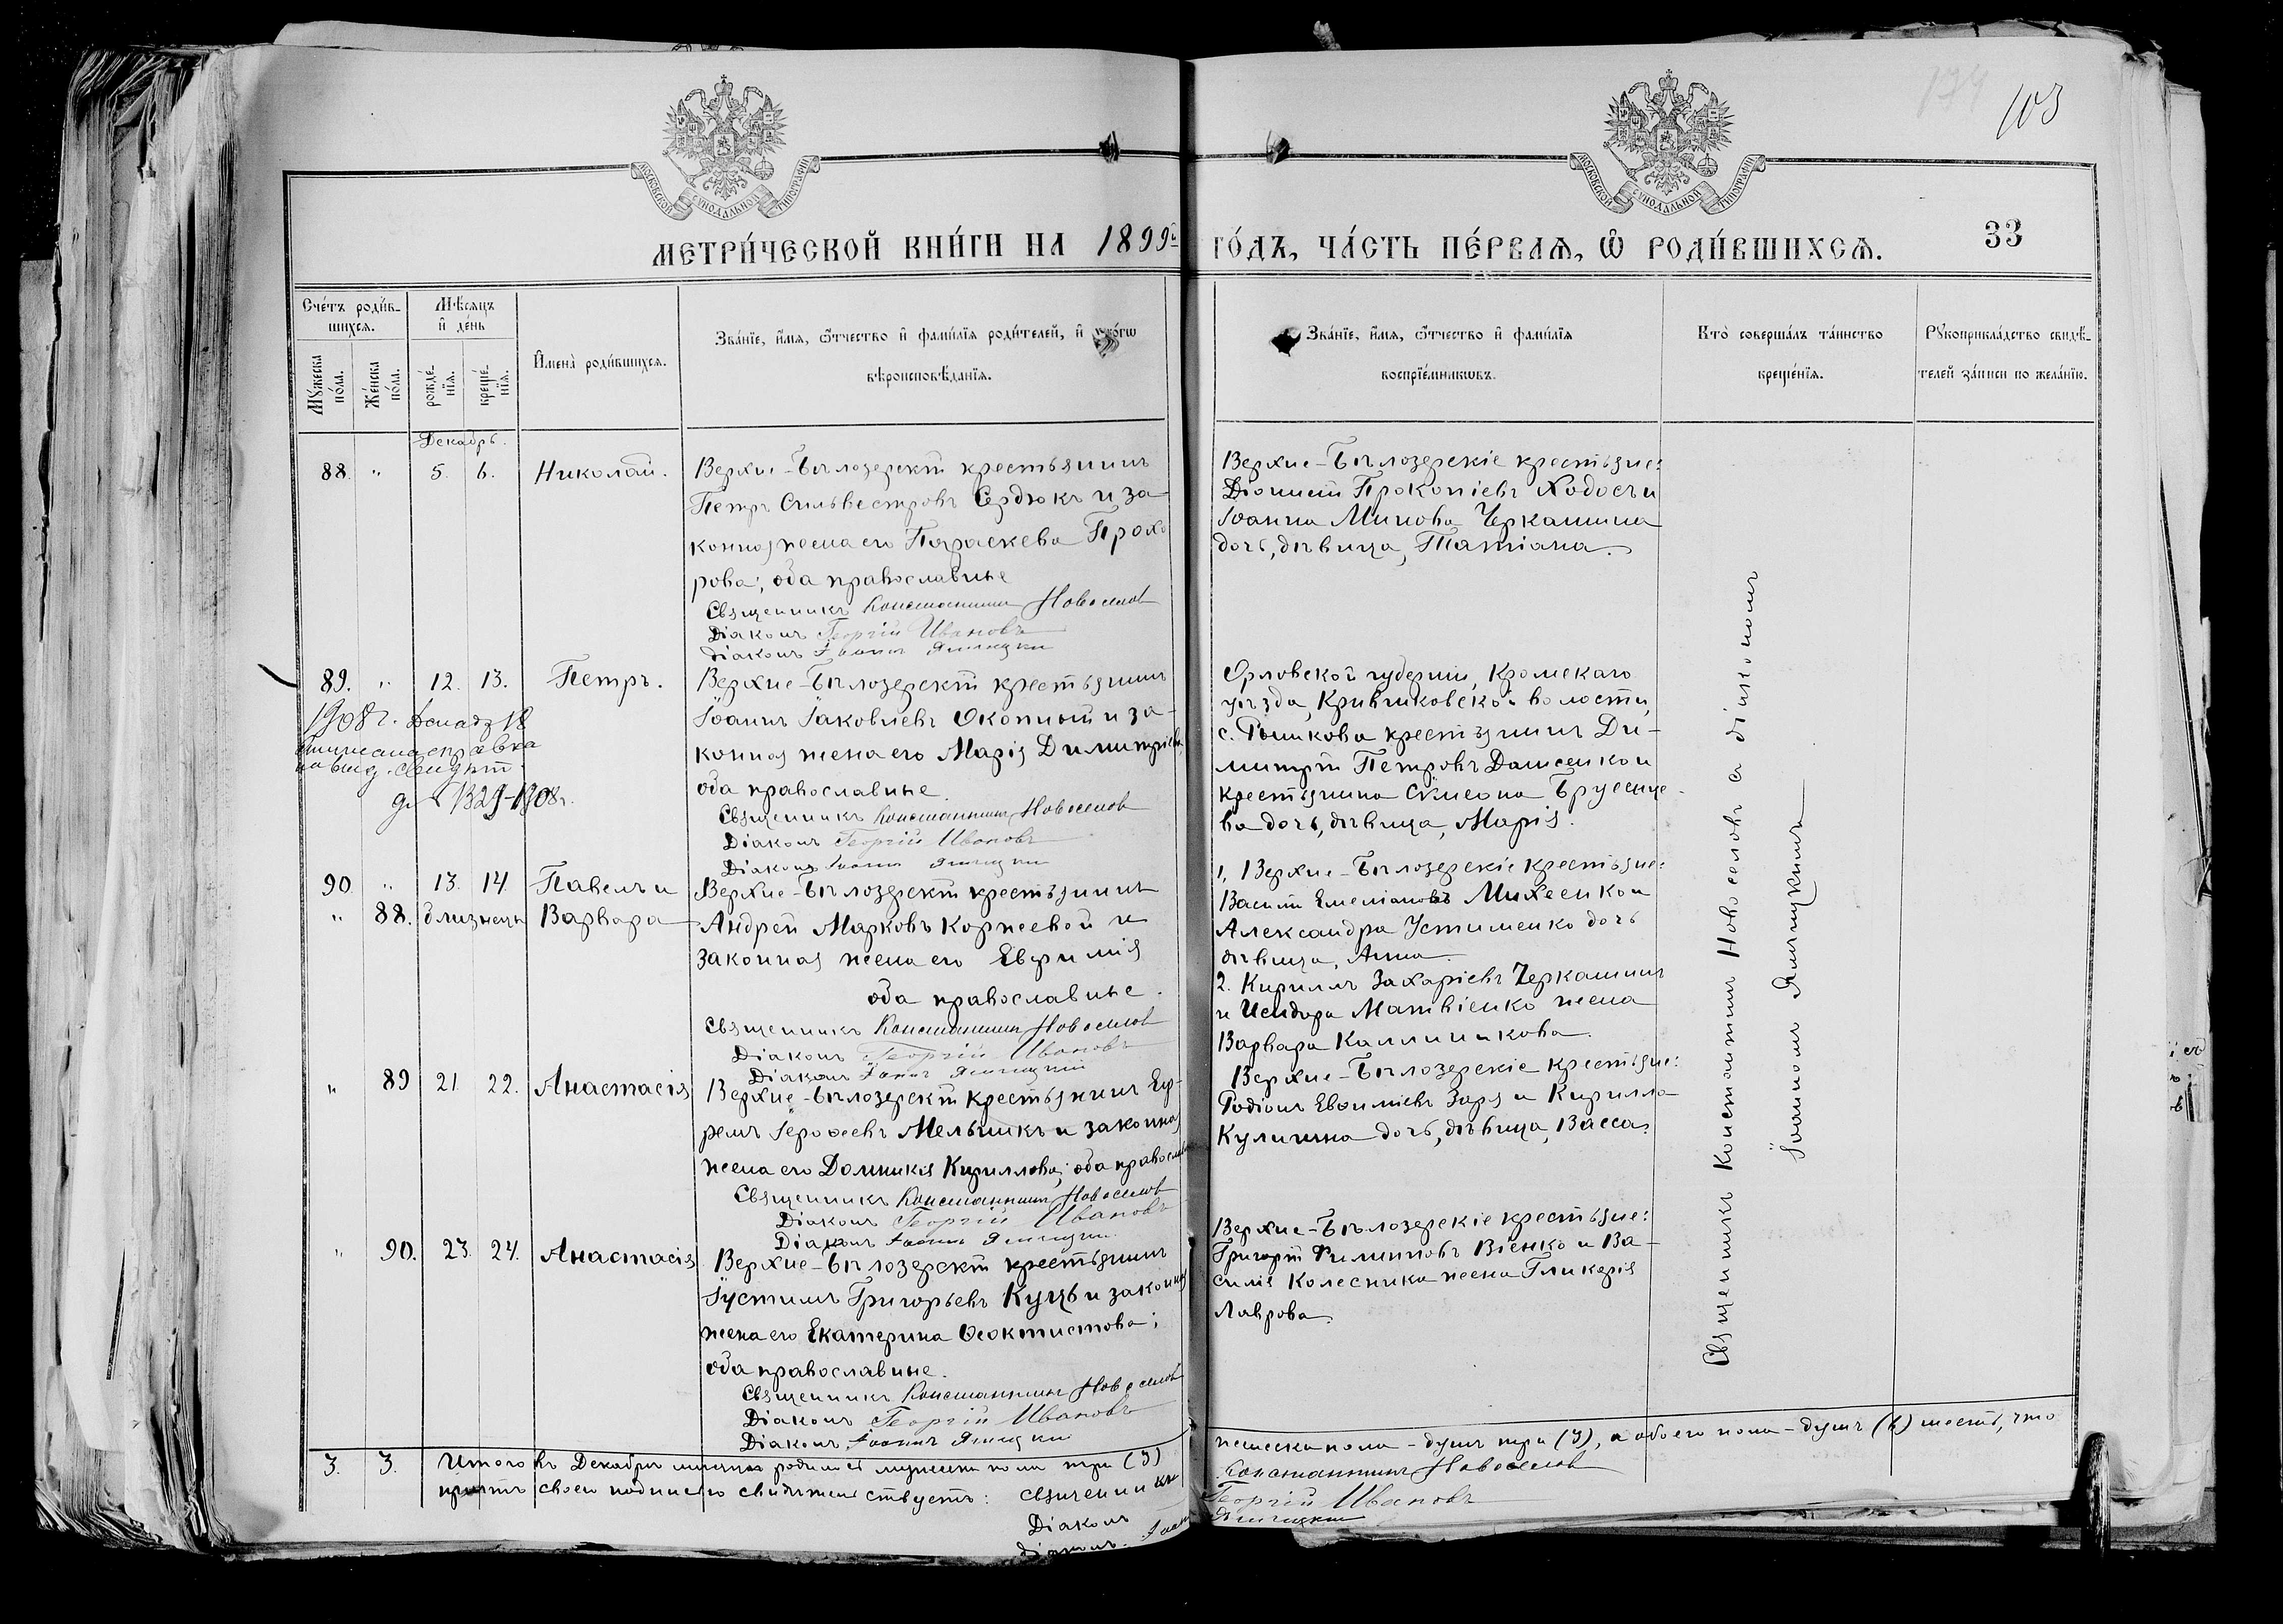 103
МОСКОВСКОЙ СѴНОДАЛЬНОЙ ТИПОГРАФІИ
МОСКОВСКОЙ СѴНОДАЛЬНОЙ ТИПОГРАФІИ
МЕТРИ́ЧЕСКОЙ КНИ́ГИ НА 1899й ГО́ДЪ, ЧА́СТЬ ПЕ́РВАѦ, Ѡ РОДИ́ВШИХСѦ.
33
Сче́тъ роди́в-
шихсѧ.
Мꙋ́жеска по́ла.
Же́нска по́ла.
Мѣ́сѧцъ
и҆ де́нь
рожде́-
нїѧ.
креще́-
нїѧ.
И҆мена̀ роди́вшихсѧ.
Зва́нїе, и҆́мѧ, ѻ҆́тчество и҆ фами́лїѧ роди́телей, и҆ како́гѡ
вѣроисповѣ́данїѧ.
Зва́нїе, и҆́мѧ, ѻ҆́тчество и҆ фами́лїѧ
воспрїе́мникѡвъ.
Кто̀ соверша́лъ та́инство
креще́нїѧ.
Рꙋкоприкла́дство свидѣ́-
телей за́писи по жела́нїю.
Декабрь.
88. " 5. 6. Николай.
Верхне-Бѣлозерскій крестьянинъ
Петръ Сильвестровъ Сердюкъ и за-
конная жена его Параскева Прохо
рова; оба православные
Священникъ Константинъ Новоселов
Діаконъ Георгій Ивановъ
Діаконъ Іоаннъ
Верхне-Бѣлозерскіе крестьяне:
Діонисій Прокопіевъ Ходосъ и
Іоанна Минова Черкашина
дочь, дѣвица, Татіана.
89. " 12. 13. Петръ.
1908 г.
справка
1329-1908 г.
Верхне-Бѣлозерскій крестьянинъ
Іоаннъ Іаковлевъ Окопный и за-
конная жена его Марія Димитріева
оба православные
Священникъ Константинъ Новоселов
Діаконъ Георгій Ивановъ
Діаконъ Іоаннъ
Орловской губерніи, Кромскаго
уѣзда, Кривчиковской волости,
с. крестьянинъ Ди-
митрій Петровъ Дашенко и
крестьянина Сѵмеона Бруснце-
ва дочь, дѣвица, Марія.
90 " 13. 14. Павелъ и
" 88. близнецы Варвара
Верхне-Бѣлозерскій крестьянинъ
Андрей Марковъ Корнеевой и
законная жена его Евфимія
оба православные.
Священникъ Константинъ Новоселов
Діаконъ Георгій Ивановъ
Діаконъ Іоаннъ
1, Верхне-Бѣлозерскіе крестьяне:
Василій Емеліановъ Михеенко и
Александра Устименко дочь
дѣвица, Анна.
2. Кириллъ Захаріевъ Черкашинъ
и Исидора Матвіенко жена
Варвара Каллиникова.
" 89 21. 22. Анастасія
Верхне-Бѣлозерскій крестьянинъ Еф-
ремъ Іероѳеевъ Мельникъ и законная
жена его Домникія Кириллова; оба православные
Священникъ Константинъ Новоселов
Діаконъ Георгій Ивановъ
Діаконъ Іоаннъ
Верхне-Бѣлозерскіе крестьяне:
Родіонъ Евѳиміевъ Заря и Кирилла
Кулинича дочь, дѣвица, Васса.
" 90. 23. 24. Анастасія
Верхне-Бѣлозерскій крестьянинъ
Іустинъ Григорьевъ Куцъ и законная
жена его Екатерина Ѳеоктистова;
оба православные.
Священникъ Константинъ Новоселов
Діаконъ Георгій Ивановъ
Діаконъ Іоаннъ
Верхне-Бѣлозерскіе крестьяне:
Григорій Филиповъ Віенко и Ва-
силія Колесника жена Гликерія
Лаврова.
Священникъ Константинъ Новоселовъ съ діакономъ
Іоанномъ
3. 3. Итого въ Декабрѣ мѣсяцѣ родилось мужеска пола три (3)
женска пола - душъ три (3), а обоего пола - душъ (6) шесть, что
причтъ своею подписью свидѣтельствуетъ: Священникъ
Константинъ Новоселов
Діаконъ Георгій Ивановъ
Діаконъ Іоаннъ